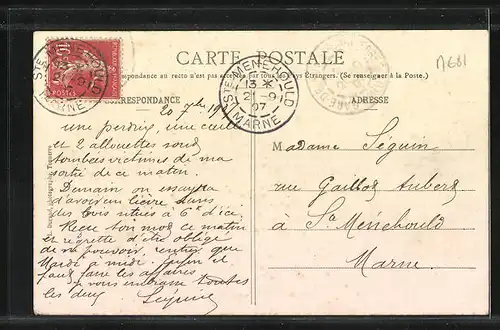 CARTE POSTALE
respondance au recto n'est pas acceptée par tous les Pays Étrangers. (Se renseigner à la Poste.)
CORRESPONDANCE
ADRESSE
STE MENEHOULD
MARNE
POSTES
STE MENEHOULD
13
21-9
07
MARNE
20 7bre
une perdrix, une caille
et 2 allouettes sont
tombées victimes de ma
sortie de ce matin.
Demain on essayera
d'avoir un lièvre dans
des bois situés à 6 K d'ici.
Reçu ton mot ce matin
et regrette d'être obligé
de ne pouvoir rentrer que
Mardi à midi. Enfin il
faut faire les affaires
vous embrasse toutes
les deux
Seguin
Madame Séguin
rue Gaillot Aubert
à Ste Ménéhould
Marne